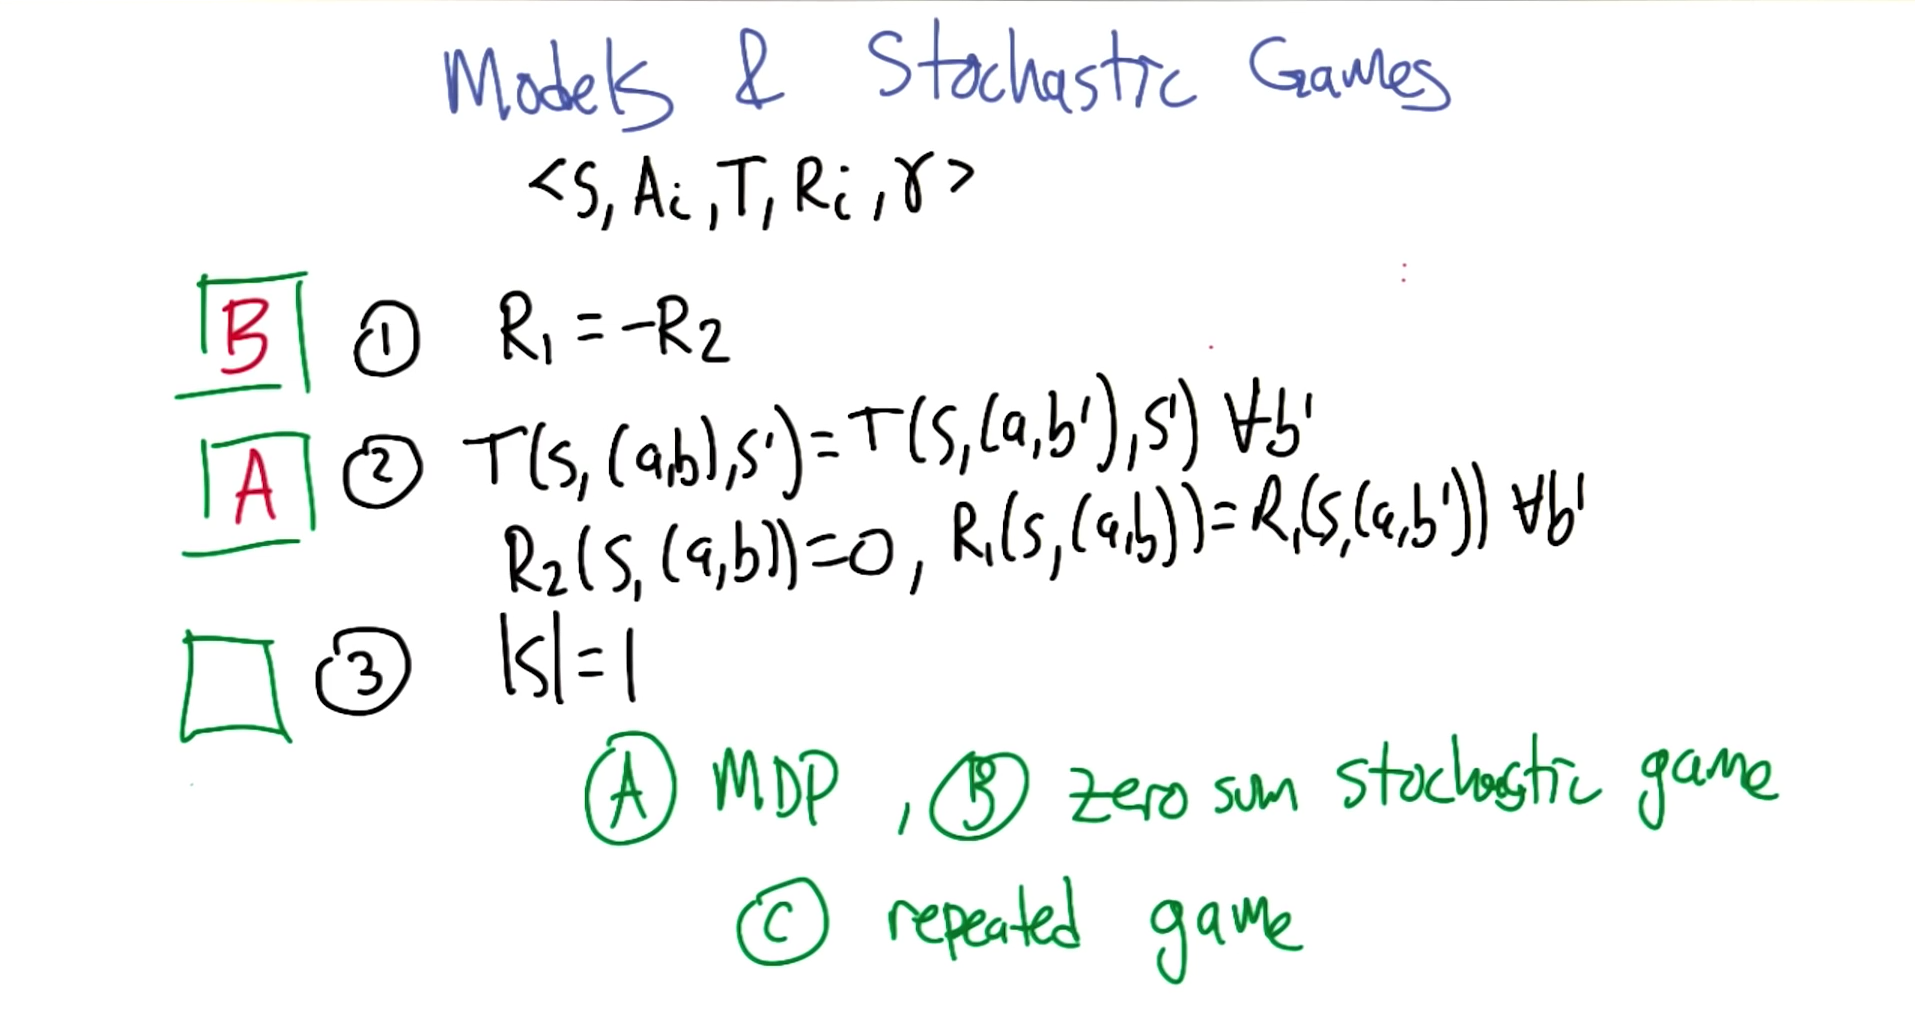 Models & Stochastic Games
<S, Ai, T, Ri, γ>
B ① R₁ = -R₂
A ② T(s,(a,b),s') = T(s,(a,b'),s') ∀b'
R₂(s,(a,b))=0, R₁(s,(a,b))=R₁(s,(a,b')) ∀b'
③ |S|=1
Ⓐ MDP, Ⓑ zero sum stochastic game
Ⓒ repeated game